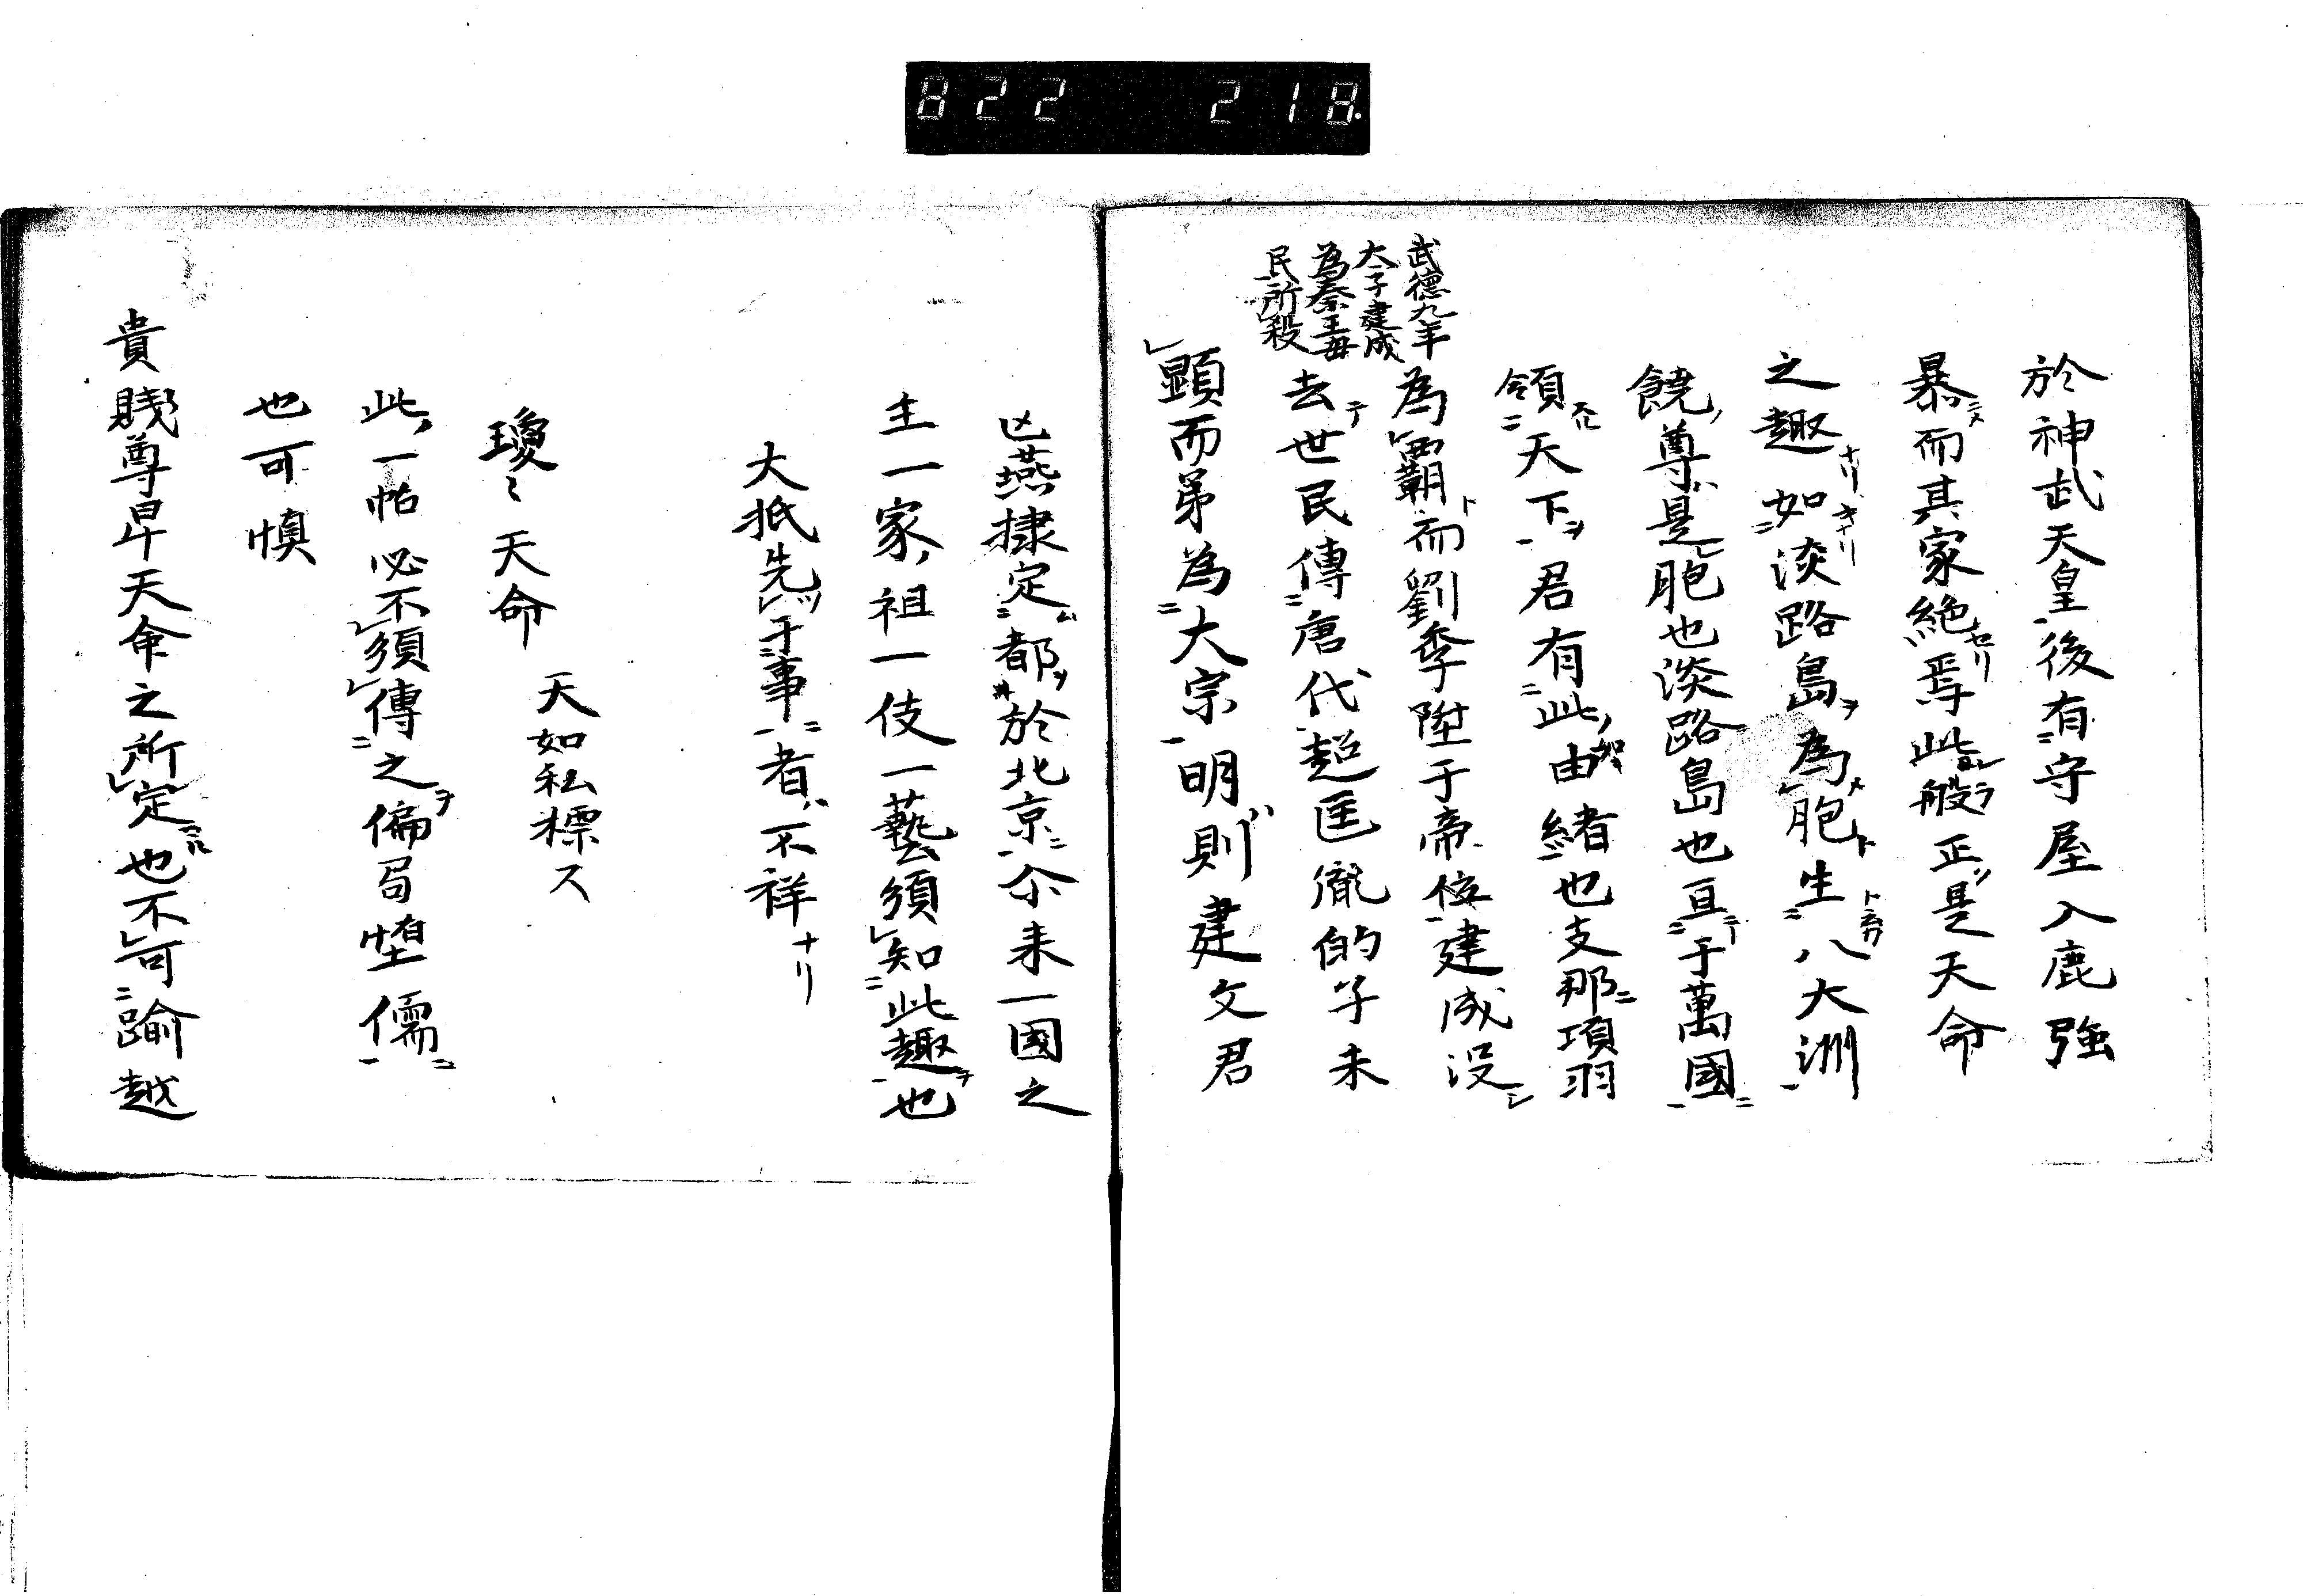 822 218
於神武天皇後有守屋入鹿強
暴而其家絶焉此般正是天命
之趣如淡路島為胞生八大洲
饒尊是胞也淡路島也亘于萬國
領天下君有此由緒也支那項羽
為覇而劉季陞于帝位建成没
去世民傳唐代超匡胤的子未
顕而弟為大宗明則建文君
武德九年
大子建成
為秦王毎
民所殺
凶燕隷定都於北京尒来一國之
主一家祖一伎一藝須知此趣也
大抵先于事者不祥ナリ
瓊〻天命
天如私標ス
此一帖必不須傳之偏局堕儒
也可慎
貴賎尊卑天命之所定也不可踰越